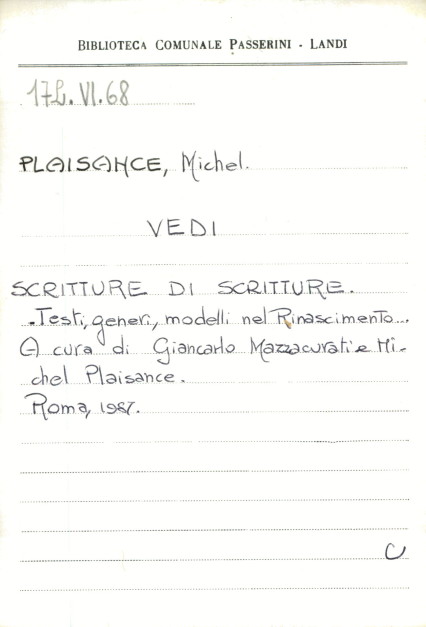 BIBLIOTECA COMUNALE PASSERINI - LANDI
17L.VI.68
PLAISANCE, Michel.
VEDI
SCRITTURE DI SCRITTURE.
Testi, generi, modelli nel Rinascimento...
A cura di Giancarlo Mazzacurati e Mi-
chel Plaisance.
Roma, 1987.
C